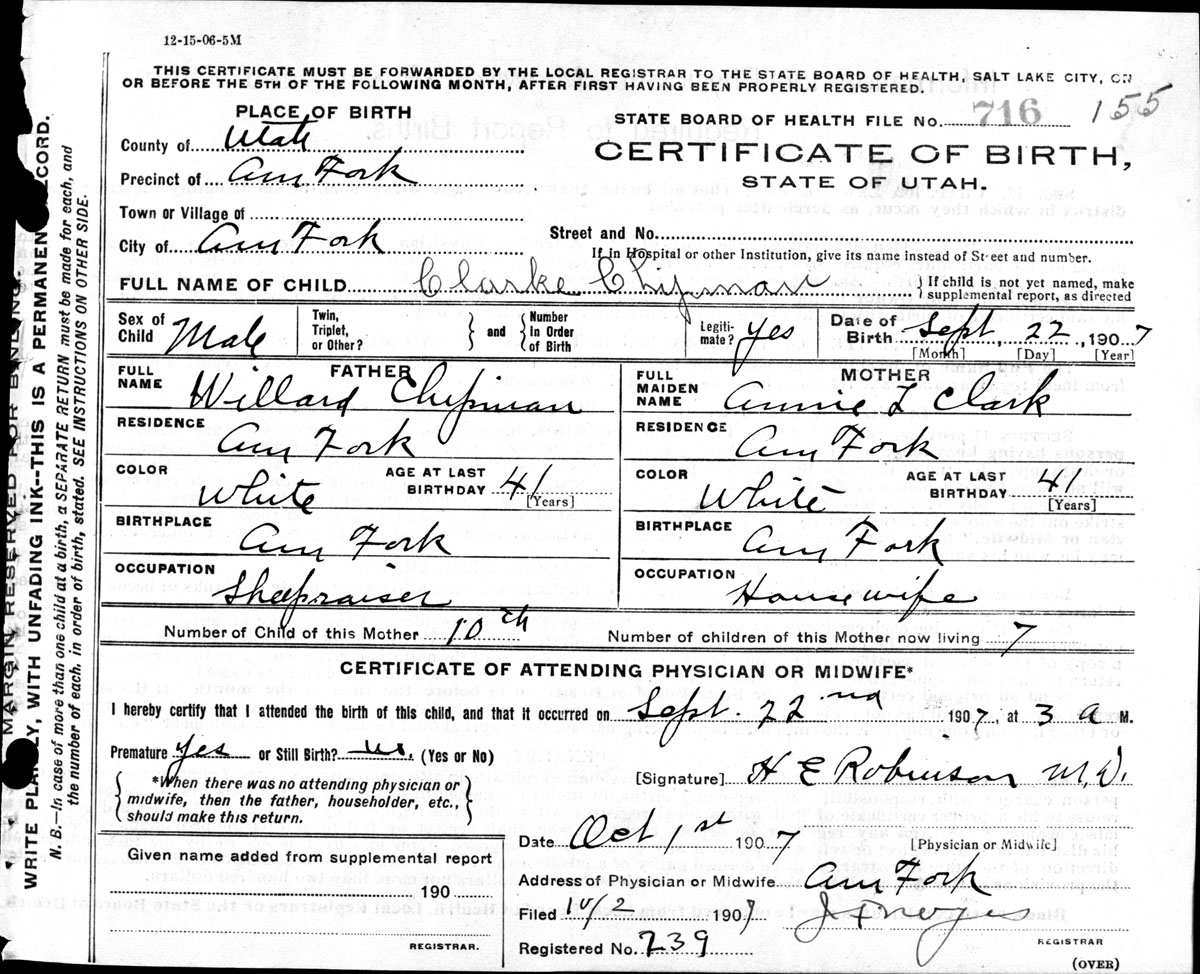 12-15-06-5M
THIS CERTIFICATE MUST BE FORWARDED BY THE LOCAL REGISTRAR TO THE STATE BOARD OF HEALTH, SALT LAKE CITY, ON
OR BEFORE THE 5TH OF THE FOLLOWING MONTH, AFTER FIRST HAVING BEEN PROPERLY REGISTERED.
PLACE OF BIRTH
STATE BOARD OF HEALTH FILE No. 716 155
County of Utah
CERTIFICATE OF BIRTH,
Precinct of Am Fork
STATE OF UTAH.
Town or Village of
City of Am Fork Street and No.
If in Hospital or other Institution, give its name instead of Street and number.
FULL NAME OF CHILD Clarke Chipman { If child is not yet named, make supplemental report, as directed
Sex of Child Male Twin, Triplet, or Other? } and { Number in Order of Birth Legitimate? yes Date of Birth Sept. 22, 1907
[Month] [Day] [Year]
FATHER MOTHER
FULL NAME Willard Chipman FULL MAIDEN NAME Annie L Clark
RESIDENCE Am Fork RESIDENCE Am Fork
COLOR White AGE AT LAST BIRTHDAY 41 [Years] COLOR White AGE AT LAST BIRTHDAY 41 [Years]
BIRTHPLACE Am Fork BIRTHPLACE Am Fork
OCCUPATION Sheepraiser OCCUPATION Housewife
Number of Child of this Mother 10th Number of children of this Mother now living 7
CERTIFICATE OF ATTENDING PHYSICIAN OR MIDWIFE*
I hereby certify that I attended the birth of this child, and that it occurred on Sept. 22nd 1907, at 3 a M.
Premature yes or Still Birth? no. (Yes or No)
{ *When there was no attending physician or midwife, then the father, householder, etc., should make this return. }
[Signature] H E Robinson M.D.
Date Oct 1st 1907 [Physician or Midwife]
Given name added from supplemental report
Address of Physician or Midwife Am Fork
190
Filed 10/2 1907
REGISTRAR. REGISTRAR
Registered No. 239
(OVER)
MARGIN RESERVED FOR BINDING.
WRITE PLAINLY, WITH UNFADING INK--THIS IS A PERMANENT RECORD.
N. B.—In case of more than one child at a birth, a SEPARATE RETURN must be made for each, and
the number of each, in order of birth, stated. SEE INSTRUCTIONS ON OTHER SIDE.